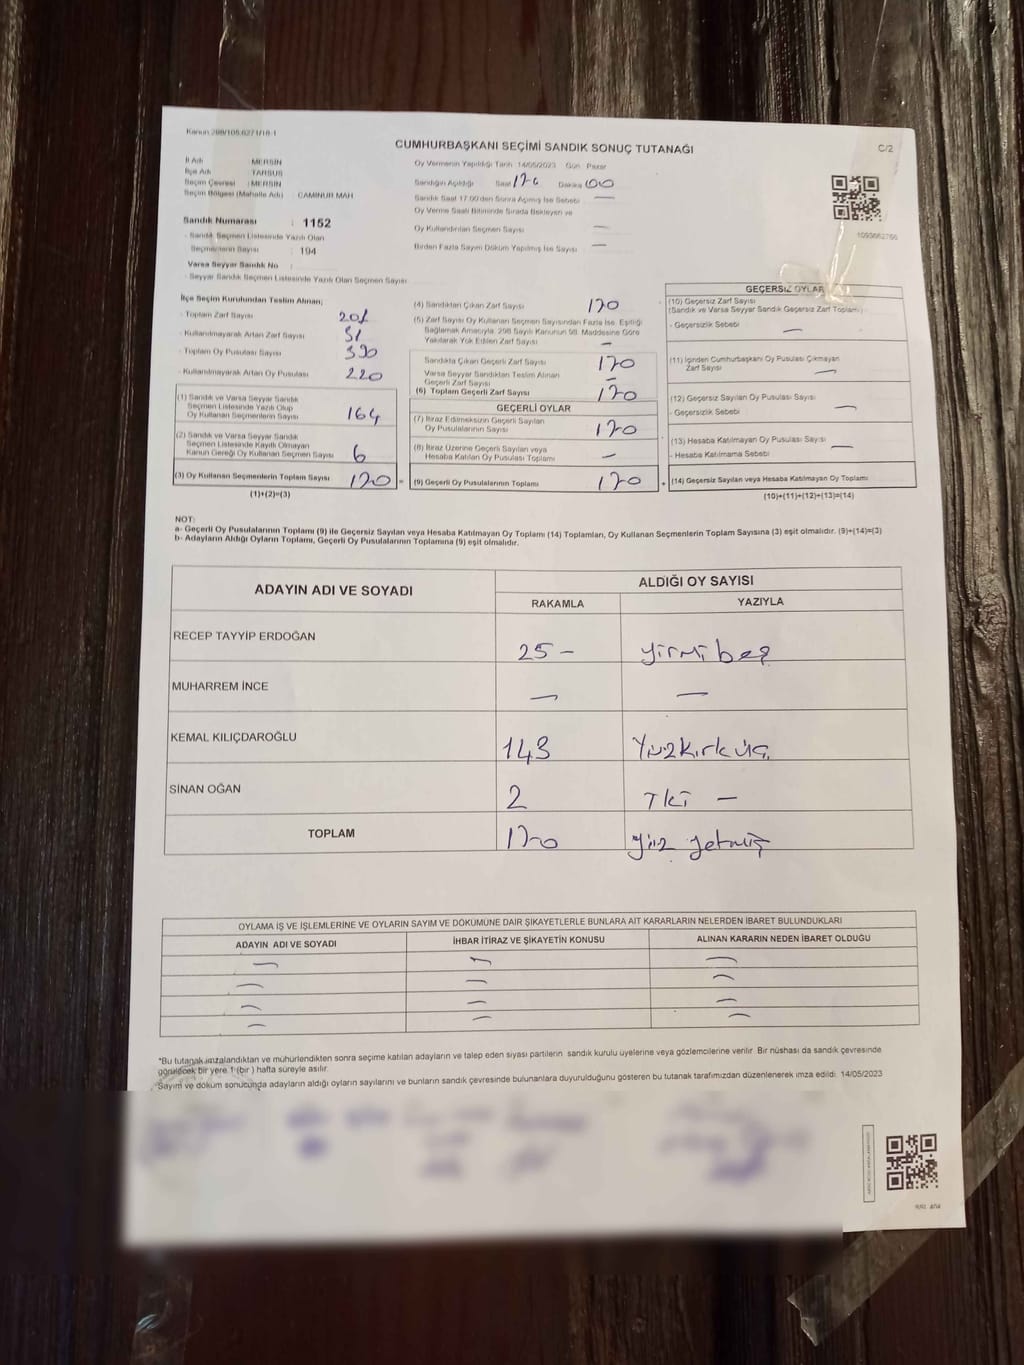 Kanun 298/105.6271/18-1
CUMHURBAŞKANI SEÇİMİ SANDIK SONUÇ TUTANAĞI
C/2
İl Adı : MERSİN
İlçe Adı : TARSUS
Seçim Çevresi : MERSİN
Seçim Bölgesi (Mahalle Adı) : CAMİNUR MAH
Oy Vermenin Yapıldığı Tarih 14/05/2023 Gün Pazar
Sandığın Açıldığı Saat Dakika 00
Sandık Saat 17.00'den Sonra Açımış İse Sebebi —
Oy Verme Saati Bitiminde Sırada Bekleyen ve
Oy Kullandırılan Seçmen Sayısı —
Birden Fazla Sayım Döküm Yapılmış İse Sayısı —
1093662766
Sandık Numarası : 1152
- Sandık Seçmen Listesinde Yazılı Olan
Seçmenlerin Sayısı : 194
Varsa Seyyar Sandık No :
- Seyyar Sandık Seçmen Listesinde Yazılı Olan Seçmen Sayısı
İlçe Seçim Kurulundan Teslim Alınan;
- Toplam Zarf Sayısı 201
- Kullanılmayarak Artan Zarf Sayısı 31
- Toplam Oy Pusulası Sayısı 390
- Kullanılmayarak Artan Oy Pusulası 220
(1) Sandık ve Varsa Seyyar Sandık
Seçmen Listesinde Yazılı Olup
Oy Kullanan Seçmenlerin Sayısı 164
(2) Sandık ve Varsa Seyyar Sandık
Seçmen Listesinde Kayıtlı Olmayan
Kanun Gereği Oy Kullanan Seçmen Sayısı 6
(3) Oy Kullanan Seçmenlerin Toplam Sayısı 170 =
(1)+(2)=(3)
(4) Sandıktan Çıkan Zarf Sayısı 170
(5) Zarf Sayısı Oy Kullanan Seçmen Sayısından Fazla İse, Eşitliği
Sağlamak Amacıyla, 298 Sayılı Kanunun 98. Maddesine Göre
Yakılarak Yok Edilen Zarf Sayısı —
Sandıkta Çıkan Geçerli Zarf Sayısı 170
Varsa Seyyar Sandıktan Teslim Alınan
Geçerli Zarf Sayısı —
(6) Toplam Geçerli Zarf Sayısı 170
GEÇERLİ OYLAR
(7) İtiraz Edilmeksizin Geçerli Sayılan
Oy Pusulalarının Sayısı 170
(8) İtiraz Üzerine Geçerli Sayılan veya
Hesaba Katılan Oy Pusulası Toplamı —
(9) Geçerli Oy Pusulalarının Toplamı 170 +
GEÇERSİZ OYLAR
(10) Geçersiz Zarf Sayısı
(Sandık ve Varsa Seyyar Sandık Geçersiz Zarf Toplamı)
- Geçersizlik Sebebi —
(11) İçinden Cumhurbaşkanı Oy Pusulası Çıkmayan
Zarf Sayısı —
(12) Geçersiz Sayılan Oy Pusulası Sayısı
- Geçersizlik Sebebi —
(13) Hesaba Katılmayan Oy Pusulası Sayısı —
- Hesaba Katılmama Sebebi
(14) Geçersiz Sayılan veya Hesaba Katılmayan Oy Toplamı
(10)+(11)+(12)+(13)=(14)
NOT:
a- Geçerli Oy Pusulalarının Toplamı (9) ile Geçersiz Sayılan veya Hesaba Katılmayan Oy Toplamı (14) Toplamları, Oy Kullanan Seçmenlerin Toplam Sayısına (3) eşit olmalıdır. (9)+(14)=(3)
b- Adayların Aldığı Oyların Toplamı, Geçerli Oy Pusulalarının Toplamına (9) eşit olmalıdır.
ADAYIN ADI VE SOYADI ALDIĞI OY SAYISI
RAKAMLA YAZIYLA
RECEP TAYYİP ERDOĞAN 25 — yirmi beş
MUHARREM İNCE — —
KEMAL KILIÇDAROĞLU 143 Yüzkırk üç
SİNAN OĞAN 2 İki —
TOPLAM 170 yüz yetmiş
OYLAMA İŞ VE İŞLEMLERİNE VE OYLARIN SAYIM VE DÖKÜMÜNE DAİR ŞİKAYETLERLE BUNLARA AİT KARARLARIN NELERDEN İBARET BULUNDUKLARI
ADAYIN ADI VE SOYADI İHBAR İTİRAZ VE ŞİKAYETİN KONUSU ALINAN KARARIN NEDEN İBARET OLDUĞU
— — —
— — —
— — —
— — —
*Bu tutanak imzalandıktan ve mühürlendikten sonra seçime katılan adayların ve talep eden siyasi partilerin sandık kurulu üyelerine veya gözlemcilerine verilir. Bir nüshası da sandık çevresinde
görülecek bir yere 1 (bir ) hafta süreyle asılır.
*Sayım ve döküm sonucunda adayların aldığı oyların sayılarını ve bunların sandık çevresinde bulunanlara duyurulduğunu gösteren bu tutanak tarafımızdan düzenlenerek imza edildi. 14/05/2023